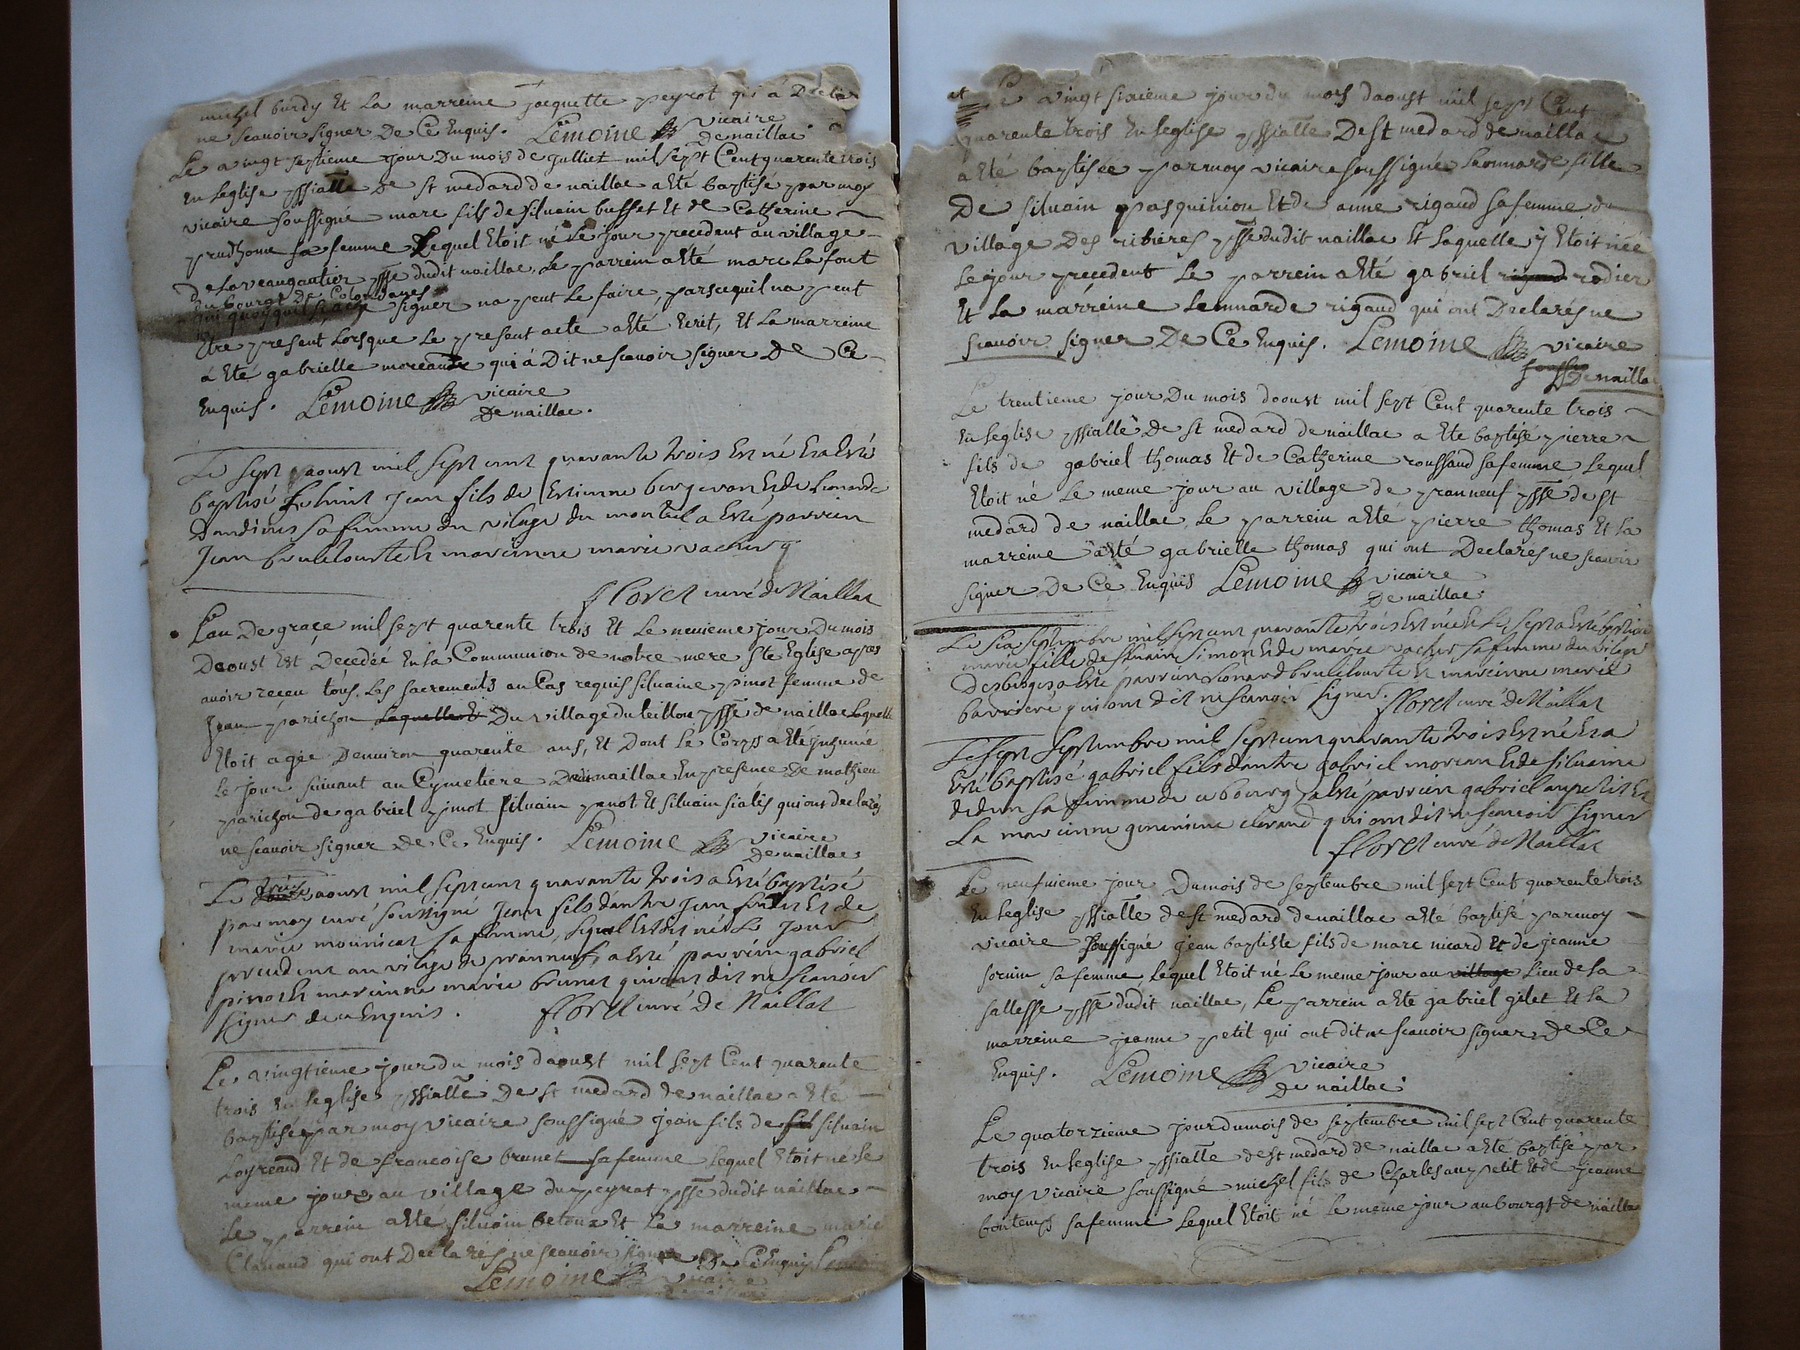 michel burdy Et La marreine jacquette peyrot qui à Decla
ne scavoir signer De Ce Enquis. Lemoine vicaire
De naillac
Le vingt septieme jour Du mois de Julliet mil sept Cent quarente trois
En Leglise pssialle De st medard de naillac a été baptisé par moy
vicaire soussigné marc fils de silvain busset Et de Catherine
prudhome sa femme Lequel Etoit né Le jour precedent au village
De Laveaugautier psse dudit naillac, Le parrein a Eté marc Lafont
du bourgt De Colondanes
qui quoy quil scache signer na peut Le faire, parsequil na peut
Etre present Lorsque Le present acte a Eté Ecrit, Et La marreine
à Eté gabrielle moreau qui à Dit ne scavoir signer De Ce
Enquis. Lemoine vicaire
De naillac.
Le sept aoust mil sept cent quarante trois Est né Et a Esté
baptisé Le huit Jean fils de Estienne bergeron Et de Leonarde
dandines sa femme du vilage du monteil a Esté parrein
Jean boulelourte Et mareinne marie vachers
floret curé de Naillat
L'an De grace mil sept quarente trois Et Le neuieme jour Du mois
Daoust Est Decedée En La Communion de notre mere ste Eglise apres
avoir receu tous Les sacrements au Cas requis silvaine pinot femme de
Jean parichon Laquelle Et Du village du teillou psse de naillac Laquelle
Etoit agée Denuiron quarente ans, Et Dont Le Corps a Eté Inhumé
Le jour suivant au Cymetiere De naillac En presence De mathieu
parichon de gabriel pinot silvain pinot Et silvain sialis qui ont declarés
ne scavoir signer De Ce Enquis. Lemoine vicaire
De naillac
Le treize aoust mil sept cent quarante trois a Esté baptisé
par moy curé soussigné Jean fils dautre Jean Et de
marie mounicat sa femme, Lequel Estoit né Le Jour
precedent au vilage de pranneuf, a Esté parrein gabriel
pinot Et mareinne marie brunet qui ont dit ne scavoir
signer de ce Enquis. floret curé de Naillat
Le vingtieme jour du mois daoust mil sept Cent quarente
trois En Leglise pssialle De st medard de naillac a Eté
baptisé par moy vicaire soussigné jean fils de fil silvain
Loyreaud Et de francoise brunet sa femme Lequel Etoit né Le
meme jour au village du peyrat psse dudit naillac
Le parrein a Eté silvain betoux Et La marreine marie
Clavaud qui ont Declarés ne scavoir signer De Ce Enquis
Lemoine vicaire
De naillac
Le vingt sixieme jour du mois daoust mil sept Cent
quarente trois En Leglise pssialle De st medard de naillac
a Eté baptisée par moy vicaire soussigné Leonnarde fille
De silvain pasquinion Et de anne rigaud sa femme du
village Des ribieres psse dudit naillac Et Laquelle y Etoit née
Le jour precedent Le parrein a Eté gabriel rigaud rodier
Et La marreine Leonnarde rigaud qui ont Declarés ne
scavoir signer De Ce Enquis. Lemoine vicaire
De naillac
Le trentieme jour Du mois daoust mil sept Cent quarente trois
En Leglise pssialle De st medard de naillac a Eté baptisé pierre
fils de gabriel thomas Et de Catherine roussaud sa femme Lequel
Etoit né Le meme jour au village de pranneuf psse de st
medard de naillac, Le parrein a Eté pierre thomas Et La
marreine a Eté gabrielle thomas qui ont Declarés ne scavoir
signer De Ce Enquis Lemoine vicaire
De naillac
Le six septembre mil sept cent quarante trois Est née Et Le sept a Esté baptisée
marie fille de silvain simon Et de marie vacher sa femme du vilage
Desbroges a Esté parrein Leonard boulelourte Et mareinne marie
barriere qui ont dit ne scavoir signer. floret curé de Naillat
Le sept septembre mil sept cent quarante trois Est né Et a
Esté baptisé gabriel fils dautre gabriel moreau Et de silvaine
dedun sa femme de ce bourg a Esté parrein gabriel aupetit Et
La mareinne genevieve clerand qui ont dit ne scavoir signer
floret curé de Naillat
Le neufuieme jour Du mois de septembre mil sept Cent quarente trois
En Leglise pssialle de st medard de naillac a Eté baptisé par moy
vicaire soussigné jean baptiste fils de marc nicard Et de jeanne
soruin sa femme Lequel Etoit né Le meme jour au village Lieu de La
sallesse psse dudit naillac, Le parrein a Eté gabriel gilet Et La
marreine jeanne petit qui ont dit ne scavoir signer De Ce
Enquis. Lemoine vicaire
De naillac
Le quatorzieme jour du mois de septembre mil sept Cent quarente
trois En Leglise pssialle de st medard de naillac a Eté baptisé par
moy vicaire soussigné michel fils de Charles aupetit Et de jeanne
bontems sa femme Lequel Etoit né Le meme jour au bourgt de naillac